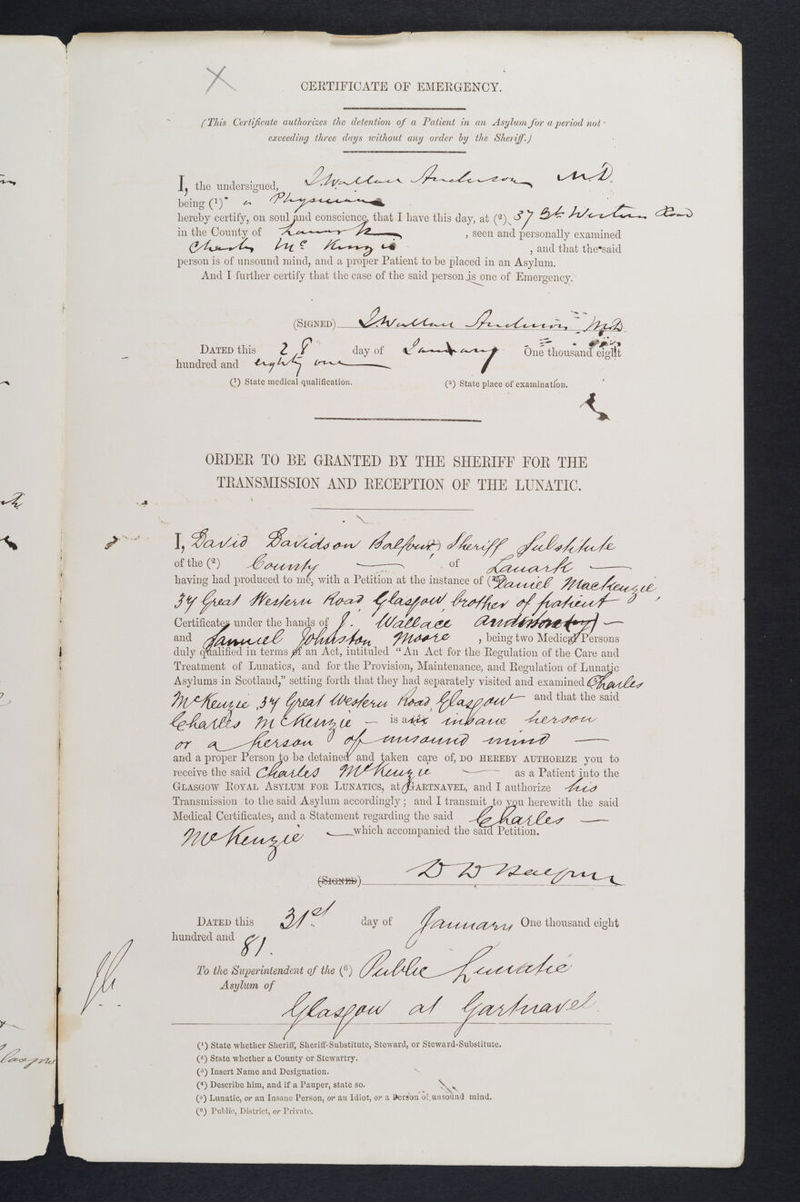 CERTIFICATE OF EMERGENCY.
(This Certificate authorizes the detention of a Patient in an Asylum for a period not
exceeding three days without any order by the Sheriff.)
I, the undersigned, J Wallace Anderson M.D.
being (1) a Physician
hereby certify, on soul and conscience, that I have this day, at (2) 37 Gt Western Road
in the County of Lanark , seen and personally examined
Charles McKenzie , and that the said
person is of unsound mind, and a proper Patient to be placed in an Asylum.
And I further certify that the case of the said person is one of Emergency.
(SIGNED) J Wallace Anderson M.D.
DATED this 28 day of January One thousand eight
hundred and eighty one
(1) State medical qualification. (2) State place of examination.
ORDER TO BE GRANTED BY THE SHERIFF FOR THE
TRANSMISSION AND RECEPTION OF THE LUNATIC.
I, David Davidson Balfour, Sheriff Substitute
of the (2) County of Lanark
having had produced to me, with a Petition at the instance of (3) Daniel Mackenzie,
37 Great Western Road Glasgow, brother of patient
Certificates under the hands of J. Wallace Anderson
and Samuel Johnston Moore , being two Medical Persons
duly qualified in terms of an Act, intituled "An Act for the Regulation of the Care and
Treatment of Lunatics, and for the Provision, Maintenance, and Regulation of Lunatic
Asylums in Scotland," setting forth that they had separately visited and examined Charles
McKenzie, 37 Great Western Road, Glasgow and that the said
Charles McKenzie is an insane person
or a person of unsound mind
and a proper Person to be detained and taken care of, DO HEREBY AUTHORIZE you to
receive the said Charles McKenzie as a Patient into the
GLASGOW ROYAL ASYLUM FOR LUNATICS, at GARTNAVEL, and I authorize his
Transmission to the said Asylum accordingly; and I transmit to you herewith the said
Medical Certificates, and a Statement regarding the said Charles
McKenzie which accompanied the said Petition.
(SIGNED) D D Balfour
DATED this 31st day of January One thousand eight
hundred and 81.
To the Superintendent of the (6) Public Lunatic
Asylum of
Glasgow at Gartnavel
(1) State whether Sheriff, Sheriff-Substitute, Steward, or Steward-Substitute.
(2) State whether a County or Stewartry.
(3) Insert Name and Designation.
(4) Describe him, and if a Pauper, state so.
(5) Lunatic, or an Insane Person, or an Idiot, or a Person of unsound mind.
(6) Public, District, or Private.